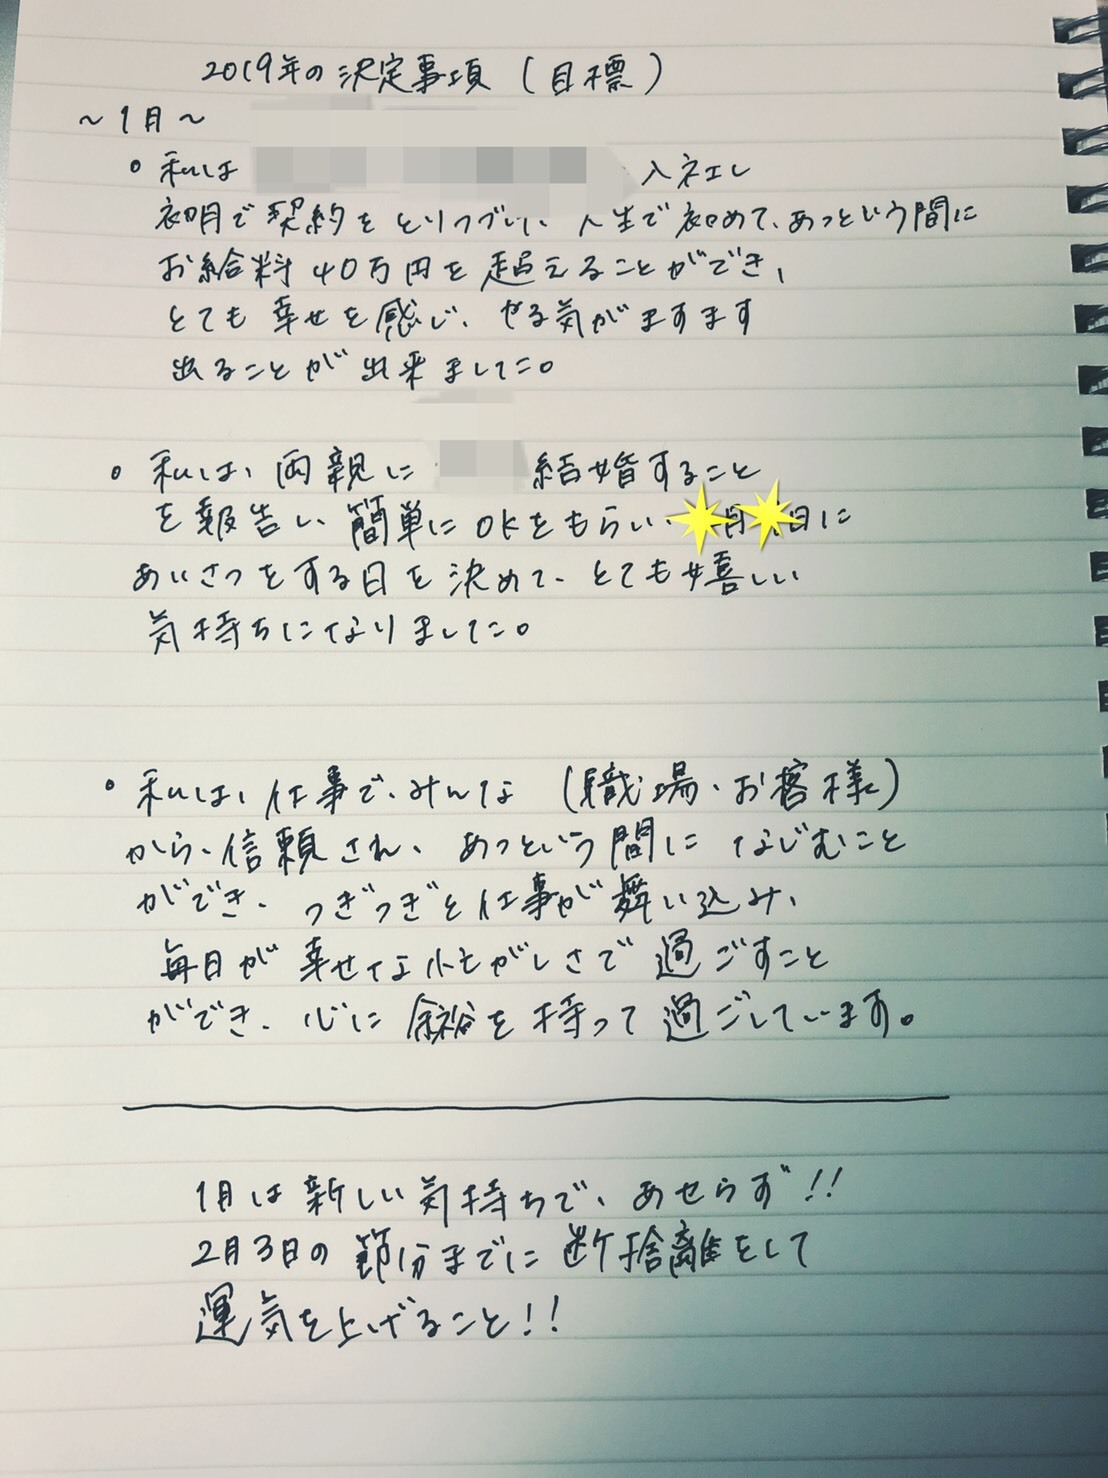 2019年の決定事項（目標）
～1月～
○ 私は 入社し
初月で契約をとりつづけ、人生で初めて、あっという間に
お給料40万円を超えることができ、
とても幸せを感じ、やる気がますます
出ることが出来ました。
○ 私は、両親に 結婚すること
を報告し、簡単にOKをもらい、 月 日に
あいさつをする日を決めて、とても嬉しい
気持ちになりました。
○ 私は、仕事で、みんな（職場・お客様）
から、信頼され、あっという間になじむこと
ができ、つぎつぎと仕事が舞い込み、
毎日が幸せな忙がしさで過ごすこと
ができ、心に余裕を持って過ごしています。
1月は新しい気持ちで、あせらず!!
2月3日の節分までに断捨離をして
運気を上げること!!